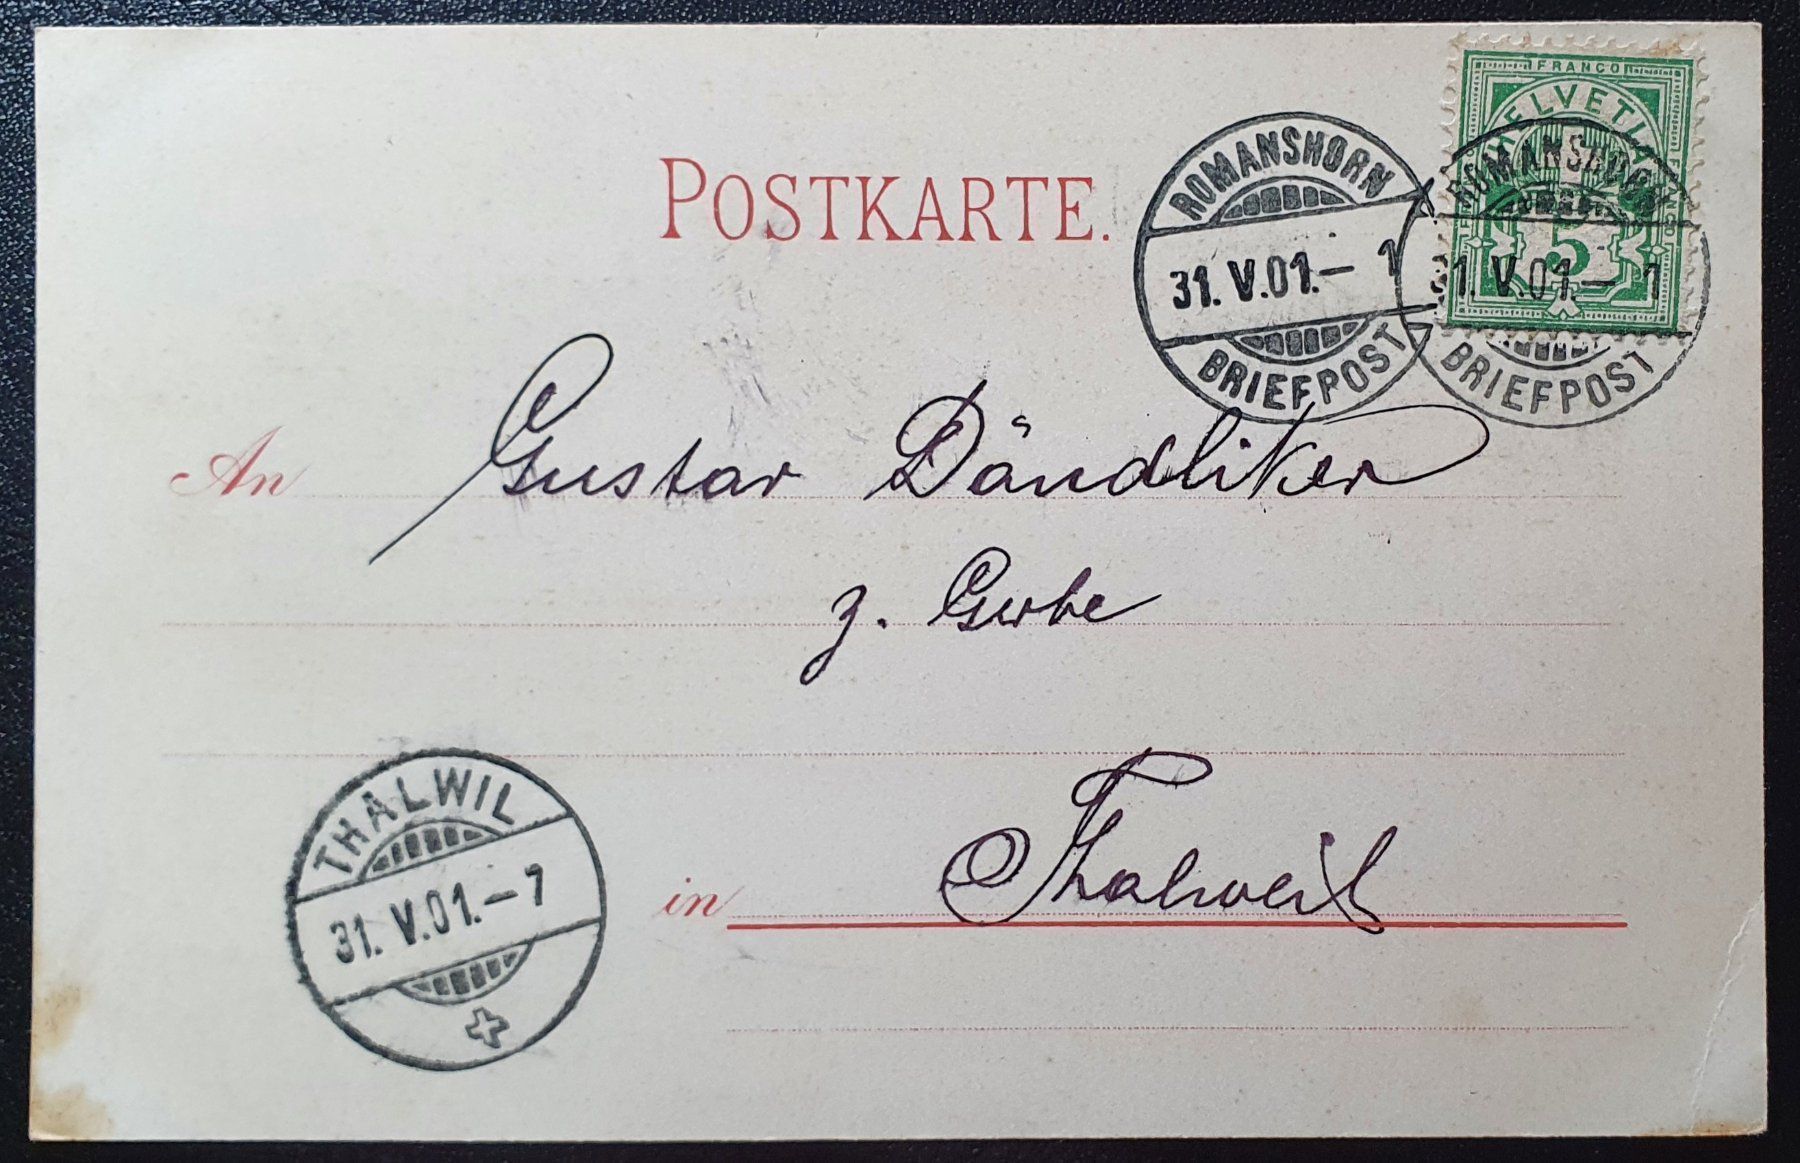 FRANCO
HELVETIA
FRANCO
FRANCO
5
POSTKARTE.
ROMANSHORN
31.V.01.– 1
BRIEFPOST
ROMANSHORN
31.V.01.– 1
BRIEFPOST
An Gustav Dändliker
z. Gerbe
in Thalweil
THALWIL
31.V.01.–7